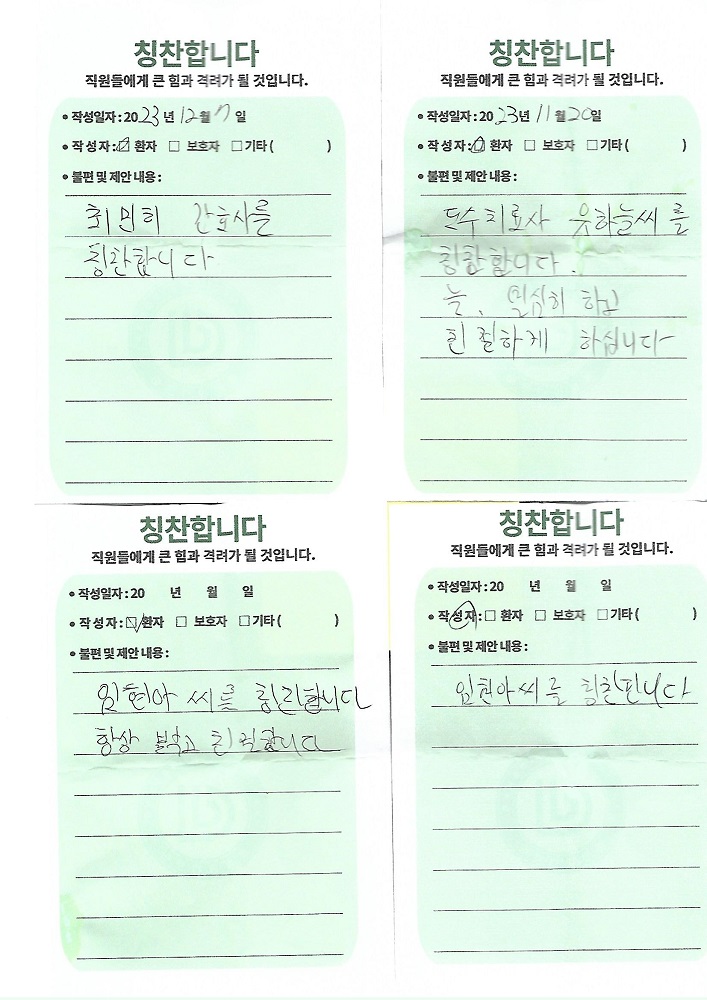 칭찬합니다
직원들에게 큰 힘과 격려가 될 것입니다.
• 작성일자 : 2023년 12월 7일
• 작 성 자 : ☑ 환자 □ 보호자 □ 기타 ( )
• 불편 및 제안 내용 :
최민희 간호사를
칭찬합니다
칭찬합니다
직원들에게 큰 힘과 격려가 될 것입니다.
• 작성일자 : 2023년 11월 20일
• 작 성 자 : ☑ 환자 □ 보호자 □ 기타 ( )
• 불편 및 제안 내용 :
도수치료사 유하늘씨를
칭찬합니다.
늘, 열심히 하고
친절하게 하십니다
칭찬합니다
직원들에게 큰 힘과 격려가 될 것입니다.
• 작성일자 : 20 년 월 일
• 작 성 자 : ☑ 환자 □ 보호자 □ 기타 ( )
• 불편 및 제안 내용 :
임현아 씨를 칭찬합니다
항상 밝고 친절합니다
칭찬합니다
직원들에게 큰 힘과 격려가 될 것입니다.
• 작성일자 : 20 년 월 일
• 작 성 자 : □ 환자 □ 보호자 □ 기타 ( )
• 불편 및 제안 내용 :
임현아씨를 칭찬합니다